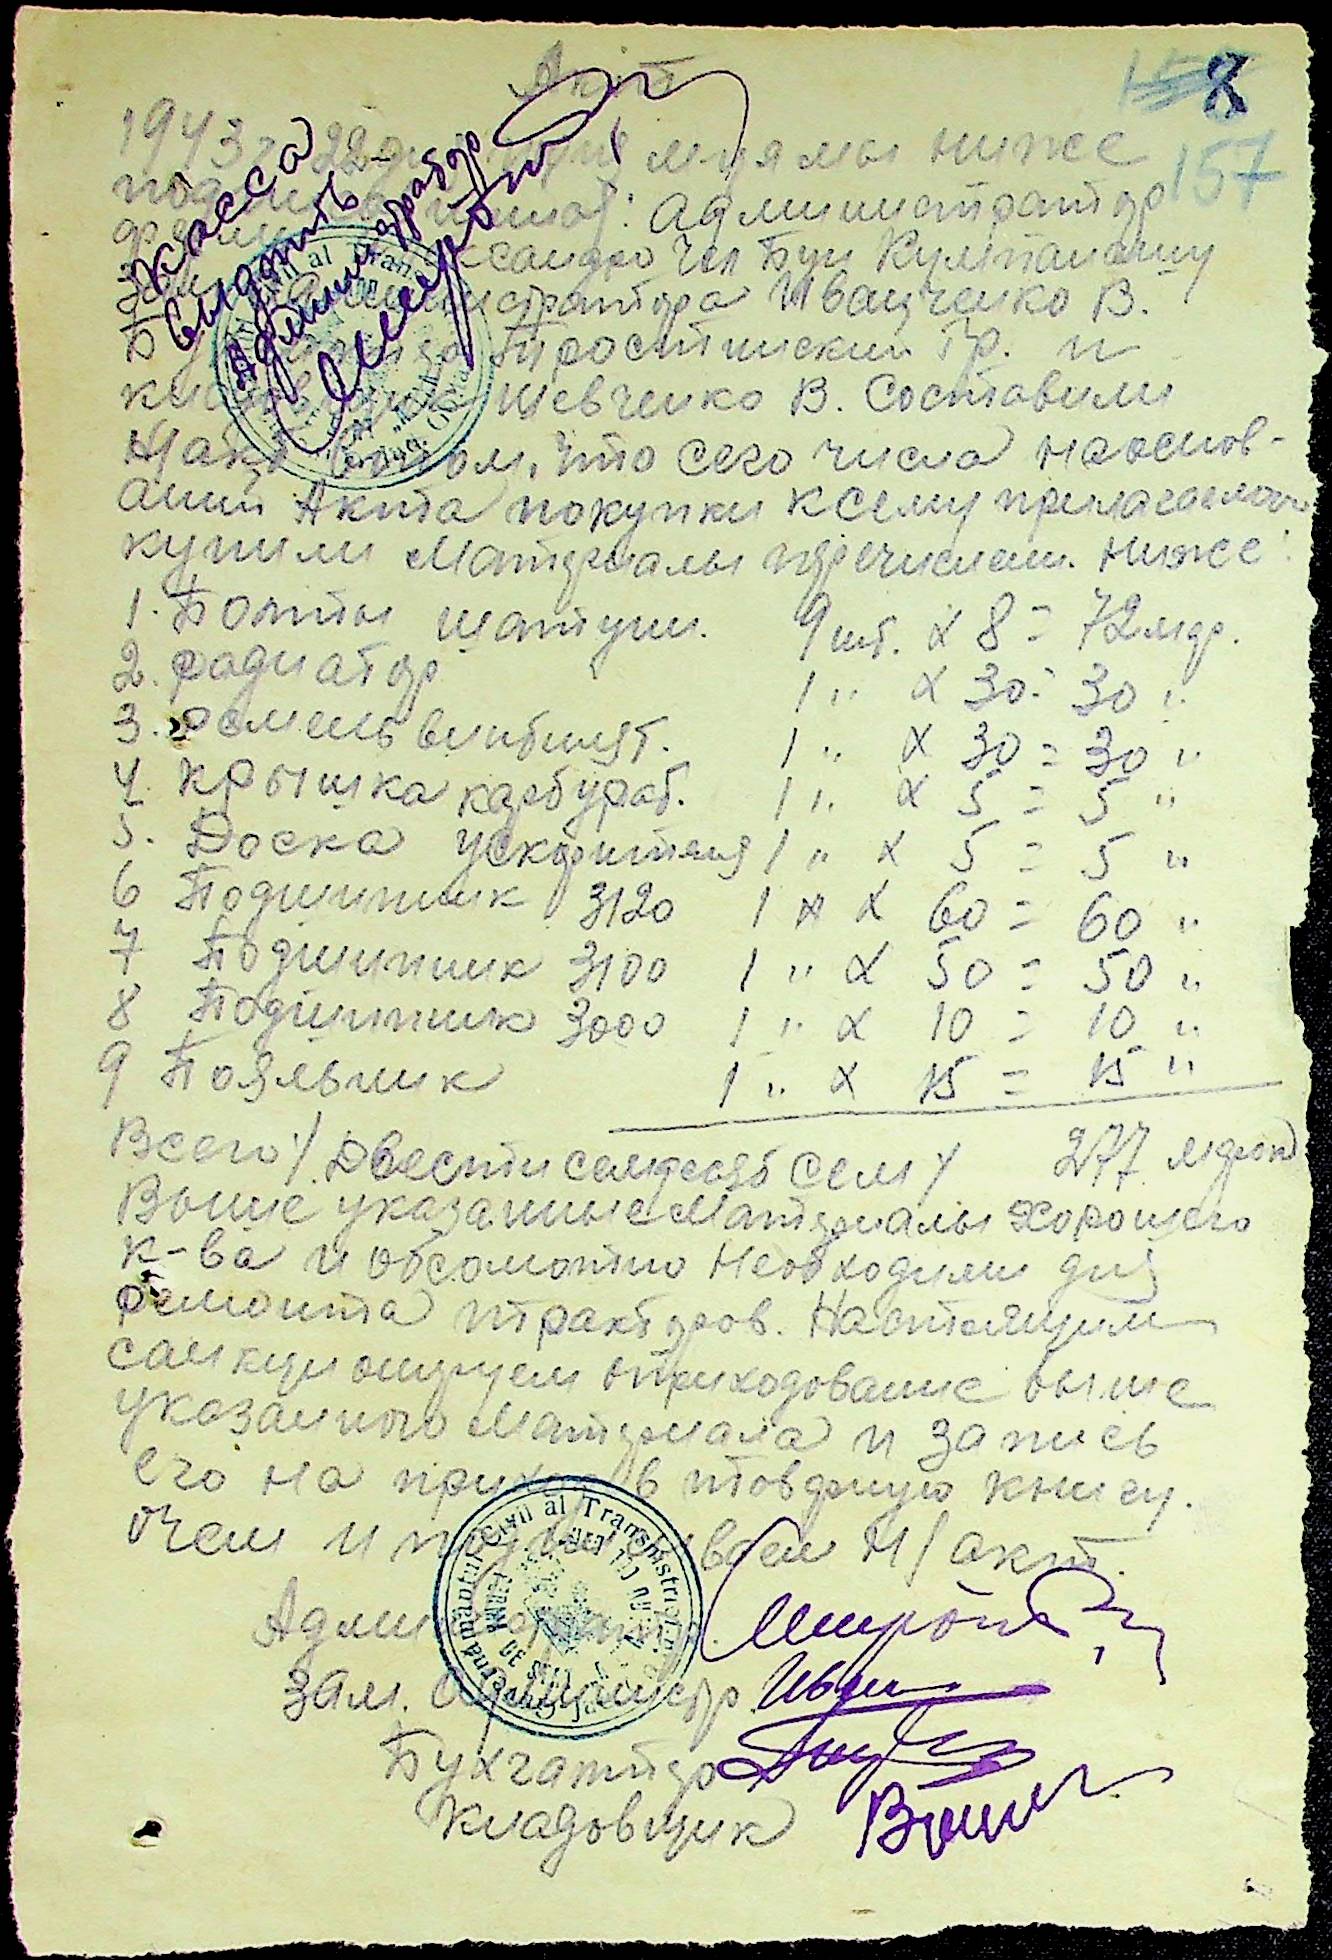 Акт
8
157
1943 г. 22 мы ниже
Администратор
Чел Бун Культпанашу
Администратора Иващенко В.
Тростинский Гр. и
кладовщик Шевченко В. Составили
Такт в том, что сего числа наоснов-
ании Акта покупки ксему прилагаемого
купили Материалы перечислен. ниже:
1. Болты шатун. 9 шт. х 8 = 72 мар.
2. Радиатор 1 " х 30 = 30 "
3. Ремень 1 " х 30 = 30 "
4. Крышка карбурат. 1 " х 5 = 5 "
5. Доска ускорителя 1 " х 5 = 5 "
6 Подшипник 3120 1 " х 60 = 60 "
7 Подшипник 3100 1 " х 50 = 50 "
8 Подшипник 3000 1 " х 10 = 10 "
9 Паяльник 1 " х 15 = 15 "
Всего / Двести семдесят семь / 277
Выше указанные Материалы Хорошего
к-ва и обсолютно Необходимы для
ремонта тракторов. Настоящим
санкционируем оприходование выше
указанного Материала и запись
его на приход в товарную книгу.
очем и подписываем Н/акт.
Администратор
Зам. Администр.
Бухгалтер
Кладовщик
Касса
выдать
Администратор
Guvernământul Civil al Transnistriei